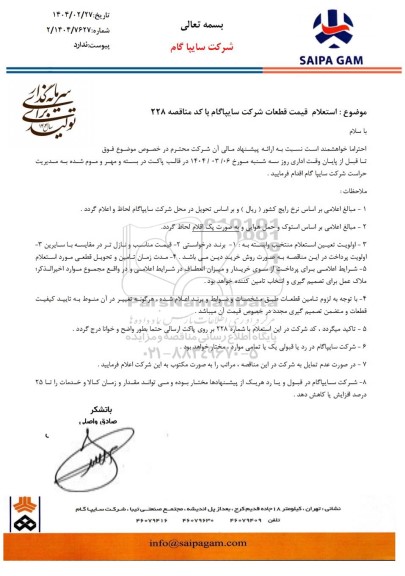 بسمه تعالی
شرکت سایپا گام
تاریخ:۱۴۰۴/۰۲/۲۷
شماره:۲/۱۴۰۴/۷۶۲۷
پیوست:ندارد
SAIPA GAM
موضوع : استعلام قیمت قطعات شرکت سایپاگام با کد مناقصه ۲۲۸
با سلام
احتراما خواهشمند است نسبت به ارائه پیشنهاد مالی آن شرکت محترم در خصوص موضوع فوق
تا قبل از پایان وقت اداری روز سه شنبه مورخ ۰۶ /۰۳ / ۱۴۰۴ در قالب پاکت در بسته و مهر و موم شده به مدیریت
حراست شرکت سایپا گام اقدام فرمایید .
ملاحظات :
۱ - مبالغ اعلامی بر اساس نرخ رایج کشور ( ریال ) و بر اساس تحویل در محل شرکت سایپاگام لحاظ و اعلام گردد .
۲ - مبالغ اعلامی بر اساس استوک و حمل هوایی و به صورت پک اقلام لحاظ گردد.
۳ - اولویت تعیین استعلام منتخب وابسته به : ۱- برند درخواستی ۲- قیمت مناسب و نازل تر در مقایسه با سایرین ۳-
اولویت پرداخت در این مناقصه به صورت روش خرید دین می باشد . ۴- مدت زمان تامین و تحویل قطعی مورد استعلام
۵- شرایط اعلامی برای پرداخت از سوی خریدار و میزان انعطاف در شرایط اعلامی و در واقع مجموع موارد اخیرالذکر؛
ملاک عمل برای تصمیم گیری و انتخاب تامین کننده خواهد بود .
۴ - با توجه به لزوم تامین قطعات طبق مشخصات و ضوابط و برند اعلام شده ، هرگونه تغییر در آن منوط به تایید کیفیت
قطعات و متضمن تصمیم گیری مجدد در خصوص قیمت آن میباشد
۵ - تاکید میگردد ، کد شرکت در این استعلام با شماره ۲۲۸ بر روی پاکت ارسالی حتما بطور واضح و خوانا درج گردد .
۶ - شرکت سایپاگام در رد یا قبولی یک یا تمامی موارد ، مختار خواهد بود .
۷ - در صورت عدم تمایل به شرکت در این مناقصه ، مراتب را به صورت مکتوب به این شرکت اعلام فرمایید .
۸- شرکت سایپاگام در قبول و یا رد هریک از پیشنهادها مختار بوده و می توانید مقدار و زمان کالا و خدمات را تا ۲۵
درصد افزایش یا کاهش دهد .
باتشکر
صادق واصلی
۰۲۱-۸۸۳۴۹۶۷۰-۵
نشانی : تهران ، کیلومتر ۱۸ جاده قدیم کرج ، بعداز پل اندیشه ، مجتمع صنعتی تیبا ، شرکت سایپا گام
تلفن ۴۶۰۷۹۴۰۹ ۴۶۰۷۹۶۳۰ ۴۶۰۷۹۴۱۶
info@saipagam.com